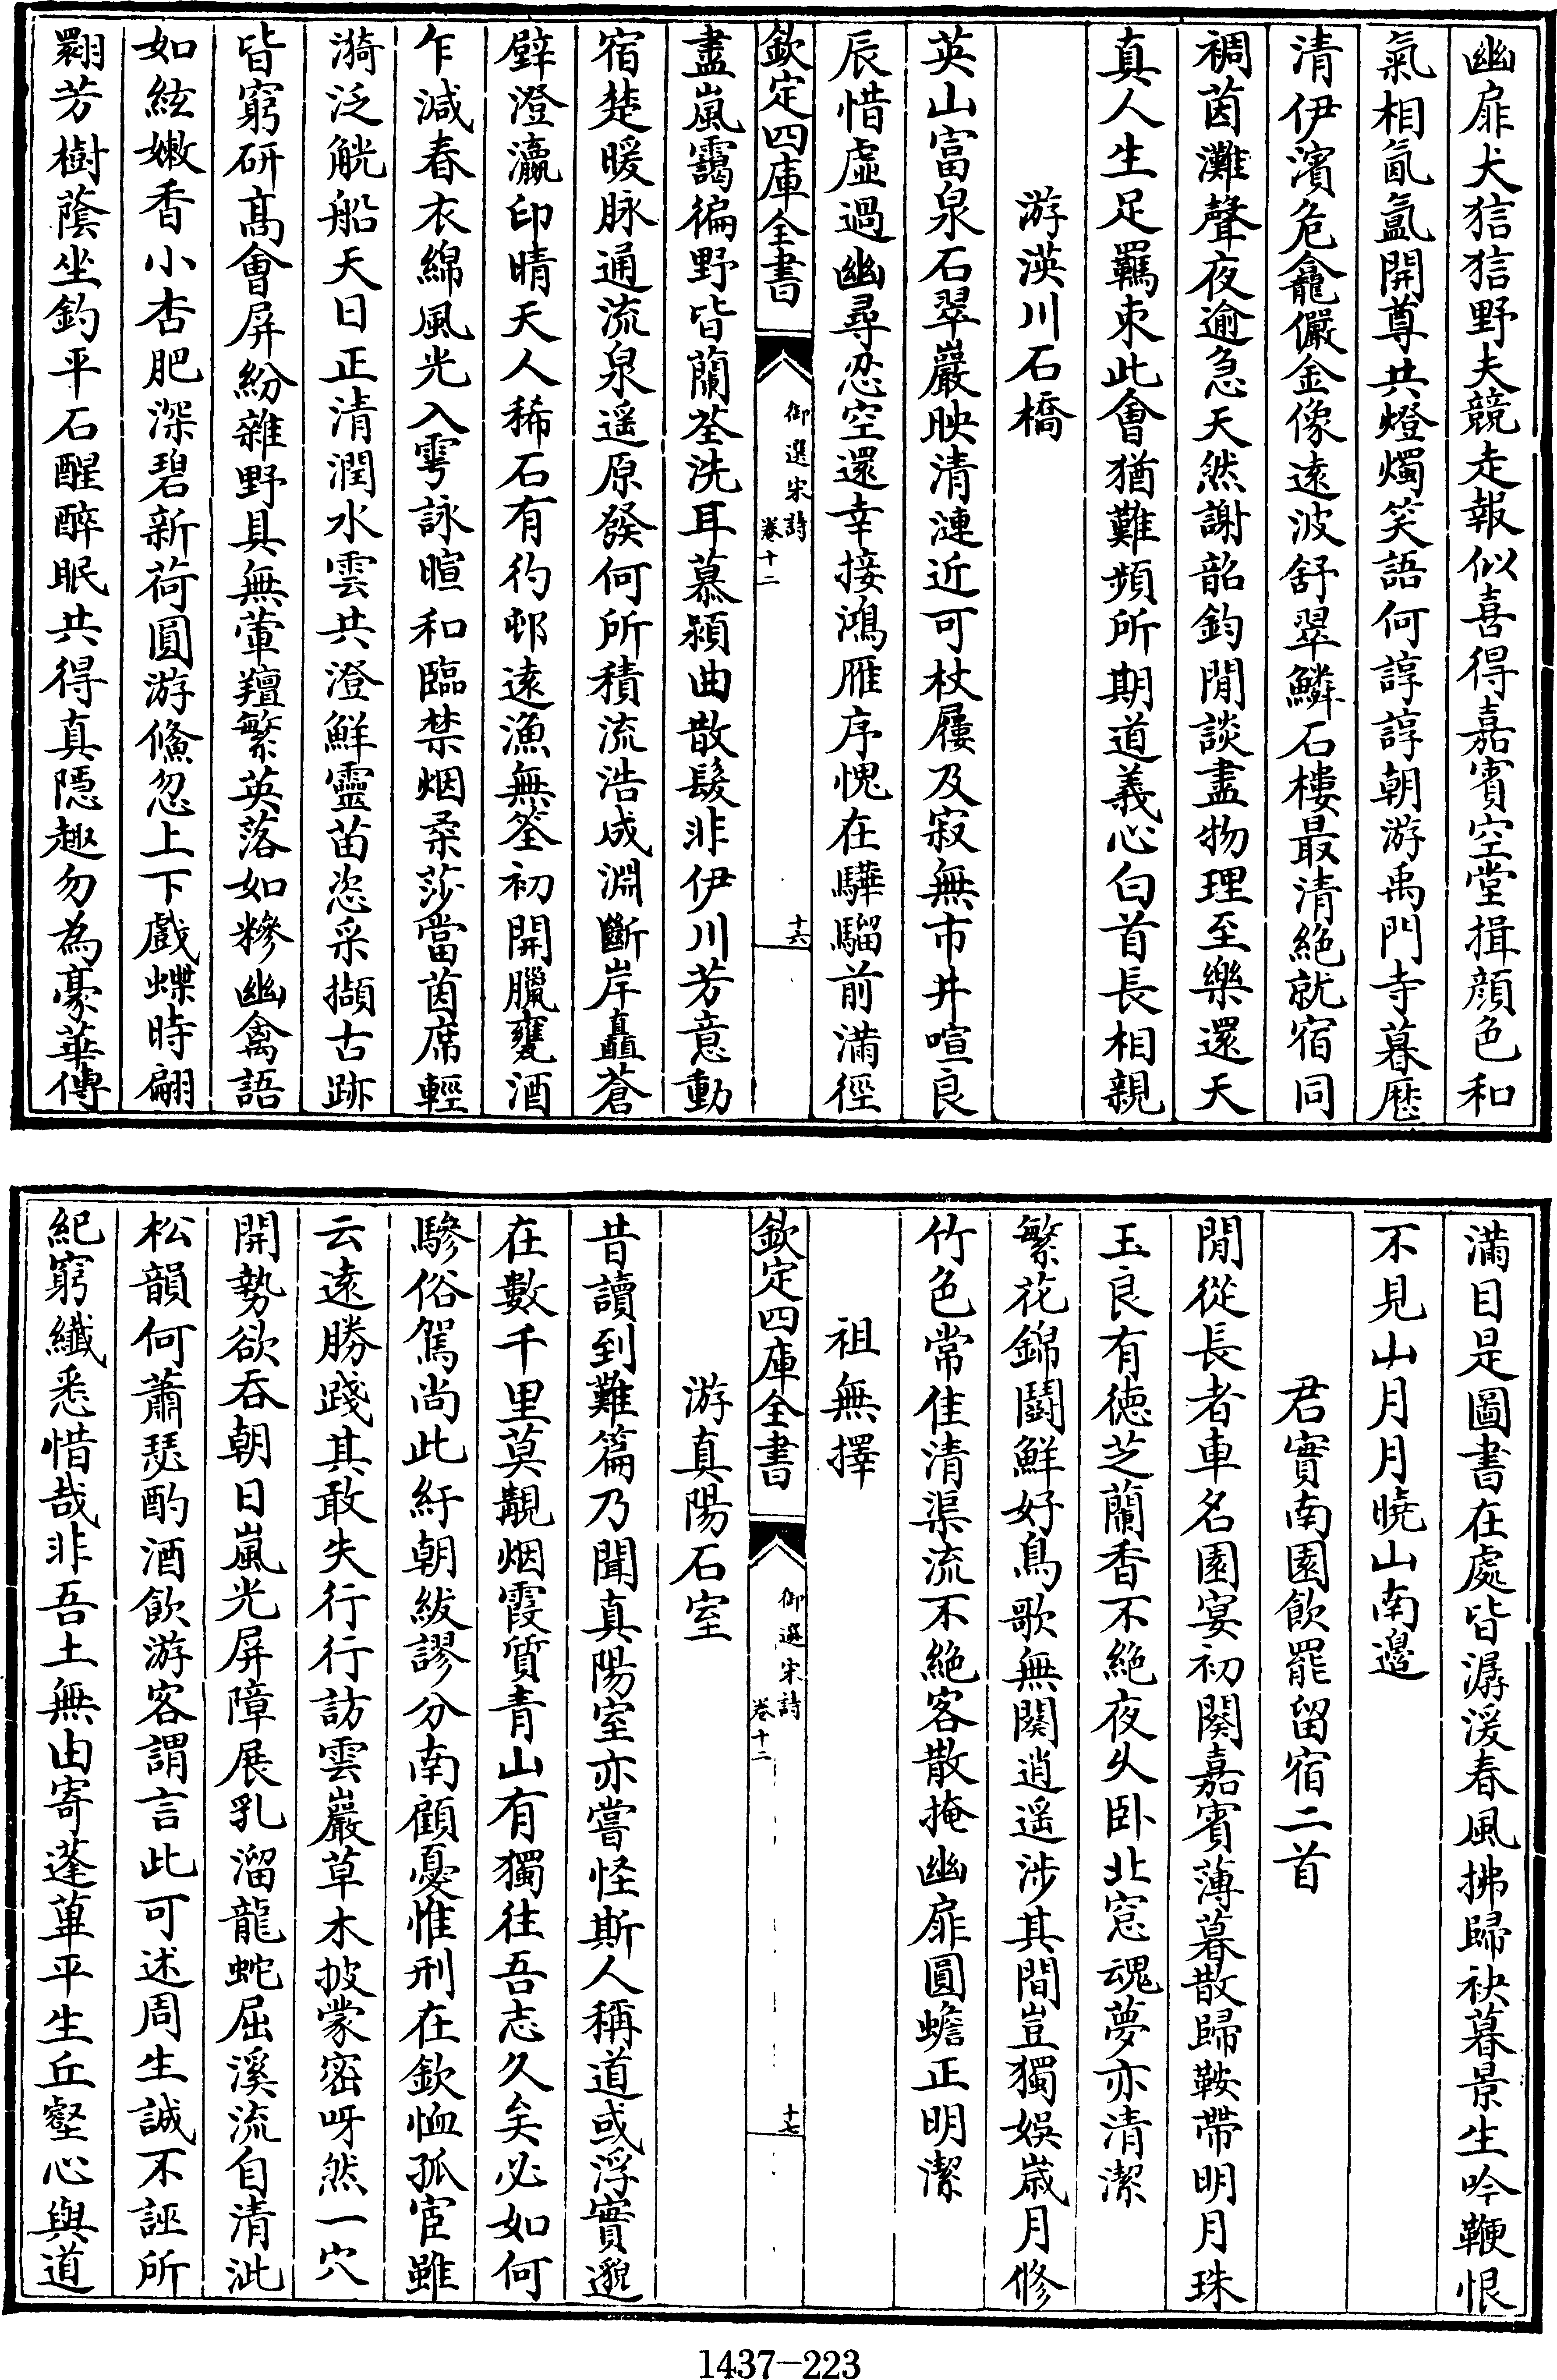 幽扉犬狺狺野夫競走報似喜得嘉賓空堂揖顔色和
氣相氤氳開尊共燈燭笑語何諄諄朝游禹門寺暮歴
清伊濱危龕儼金像遠波舒翠鱗石樓最清絶就宿同
裯茵灘聲夜逾急天然謝韶鈞閒談盡物理至樂還天
真人生足羈束此會猶難頻所期道義心白首長相親
游渶川石橋
英山富泉石翠巖映清漣近可杖屨及寂無市井喧良
辰惜虛過幽尋忍空還幸接鴻雁序愧在驊騮前滿徑
欽定四庫全書
御選宋詩
卷十二
十六
盡嵐靄徧野皆蘭荃洗耳慕潁曲散髮非伊川芳意動
宿楚暖脉通流泉遥原發何所積流浩成淵斷岸矗蒼
壁澄瀛印晴天人稀石有彴邨遠漁無筌初開臘甕酒
乍減春衣綿風光入雩詠暄和臨禁烟柔莎當茵席輕
漪泛觥船天日正清潤水雲共澄鮮靈苗恣采擷古跡
皆窮研髙會屏紛雜野具無葷羶繁英落如糝幽禽語
如絃嫩香小杏肥深碧新荷圓游鯈忽上下戲蝶時翩
翾芳樹蔭坐釣平石醒醉眠共得真隠趣勿為豪華傳
滿目是圖書在處皆潺湲春風拂歸袂暮景生吟鞭恨
不見山月月曉山南邊
君實南園飲罷留宿二首
閒從長者車名園宴初闋嘉賓薄暮散歸鞍帶明月珠
玉良有德芝蘭香不絶夜久卧北窓魂夢亦清潔
繁花錦鬪鮮好鳥歌無闋逍遥涉其間豈獨娯歳月修
竹色常佳清渠流不絶客散掩幽扉圓蟾正明潔
祖無擇
欽定四庫全書
御選宋詩
卷十二
十七
游真陽石室
昔讀到難篇乃聞真陽室亦嘗怪斯人稱道或浮實邈
在數千里莫覩烟霞質青山有獨往吾志久矣必如何
驂俗駕尚此紆朝紱謬分南顧憂惟刑在欽恤孤宦雖
云遠勝踐其敢失行行訪雲巖草木披蒙密呀然一穴
開勢欲吞朝日嵐光屏障展乳溜龍蛇屈溪流自清泚
松韻何蕭瑟酌酒飲游客謂言此可述周生誠不誣所
紀窮纎悉惜哉非吾土無由寄蓬蓽平生丘壑心與道
1437—223